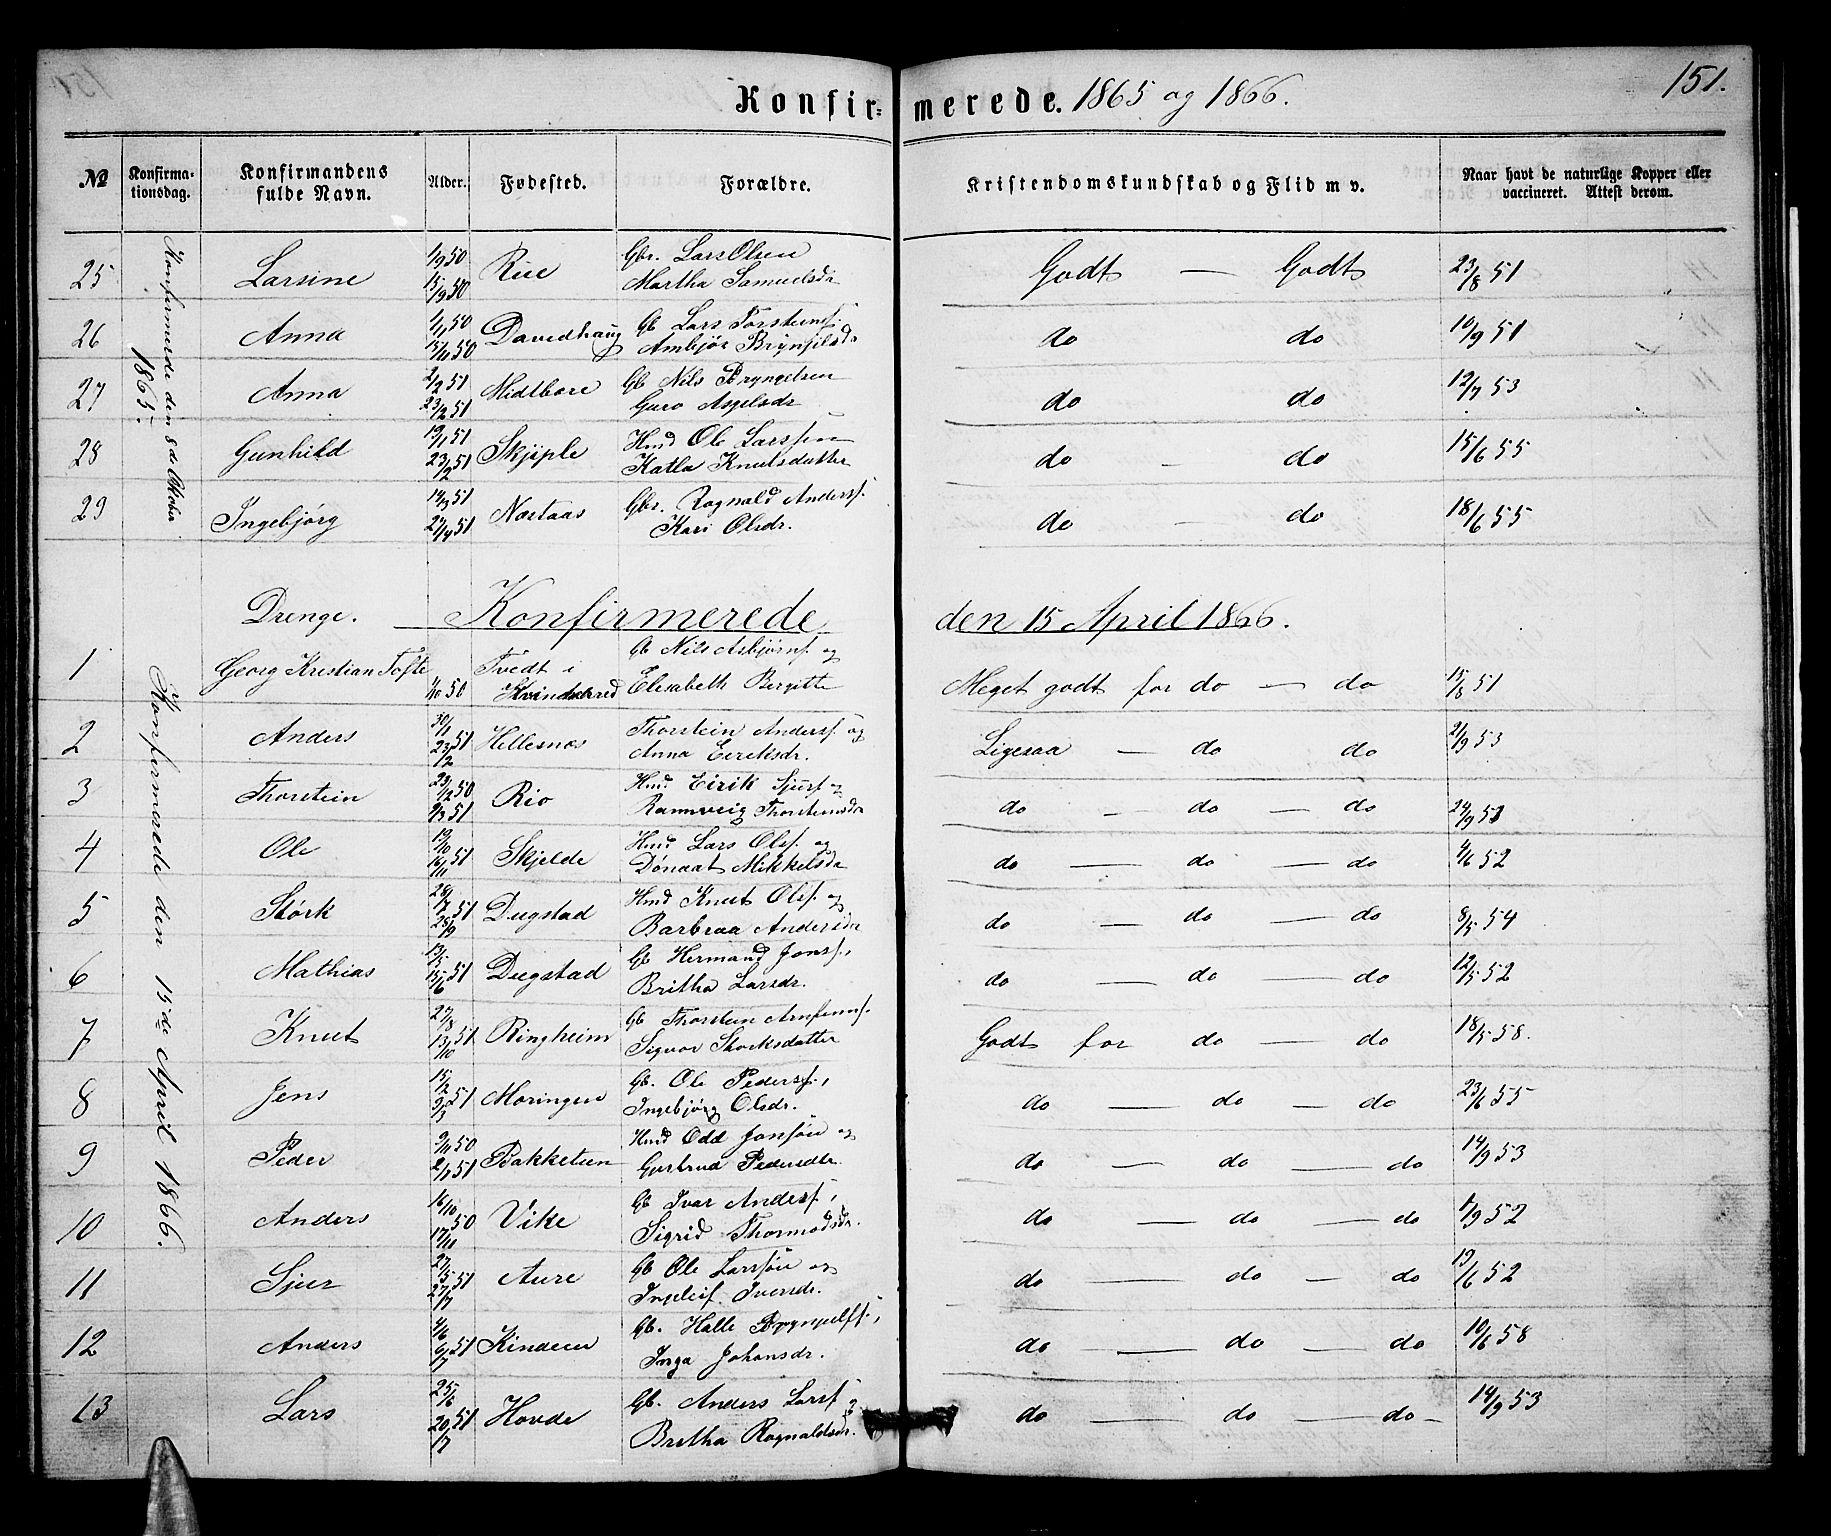 Konfir= merede. 1865 og 1866. 151.
No Konfirma-tionsdag. Konfirmandens fulde Navn. Alder. Fødested. Forældre. Kristendomskundskab og Flid m v. Naar havt de naturlige Kopper eller vaccineret. Attest derom.
Konfirmerede den 8de Oktober 1865.
25 Larsine 1/9 50 15/9 50 Rue Gbr. Lars Olsen Martha Samuelsdr Godt — Godt 23/8 51
26 Anna 1/11 50 15/11 50 Davidhaug Gb Lars Torsteinss. Ambjør Brynjelsdr do do 10/9 51
27 Anna 2/2 51 23/2 51 Midtbøre Gb Nils Bryngelsen Guro Aslelsdr do do 12/7 53
28 Gunhild 19/1 51 23/2 51 Skjiple Hmd Ole Larssen Katla Knutsdatter do - do 15/6 55
29 Ingebjørg 14/3 51 27/4 51 Nøstaas Gbr. Ragnald Anderss. Kari Olsdr. do - do 18/6 55
Drenge. — Konfirmerede den 15 April 1866.
Konfirmerede den 15de April 1866.
1 Georg Kristian Tofte 1/10 50 Tvedt i Kvindherred Gb Nils Asbjørns. og Elisabeth Birgitte Meget godt for do — do 15/8 51
2 Anders 30/1 51 23/2 Hellesnøs Thorstein Anderss. og Anna Eiriksdr. Ligesaa — do do 2/9 53
3 Thorstein 29/12 50 2/3 51 Rio Hmd. Eirik Sjurs. og Rannveig Thorsteinsdr do - do — do 24/9 51
4 Ole 19/10 51 16/11 Skjelde Hmd Lars Ols. og Dønaat Mikkelsdr do — do — do 4/6 52
5 Størk 28/7 51 28/9 Dugstad Hmd Knut Ols. og Barbraa Andersdr do — do — do 8/5 54
6 Mathias 13/5 51 15/6 Dugstad Gb Hermand Jonss., Britha Larsdr. do — do — do 12/5 52
7 Knut 27/8 51 13/10 Ringheim Gb Thorstein Arnfinns. Sigvor Størksdatter Godt for do — do 18/5 58.
8 Jens 15/2 51 9/3 Møringen Gb. Ole Pederss., Ingebjørg Olsdr. do — do — do 23/6 55
9 Peder 9/11 50 2/2 51 Bakketun Hmd Odd Jonsøn og Gertrud Pedersdtr. do — do — do 14/9 53
10 Anders 16/10 50 17/11 Vike Gb Ivar Anderss., Sigrid Thormodsdr. do — do — do 1/9 52
11 Sjur 27/5 51 27/7 Aure Gb Ole Larssøn og Ingeleif Iversdr. do — do — do 19/6 52
12 Anders 4/6 51 6/7 Kinden Gb. Halle Bryngelss., Inga Johansdr. do — do — do 10/6 58
13 Lars 25/6 51 20/7 Hovde Gb. Anders Larss. og Britha Ragnaldsdr. do — do — do - 14/9 53